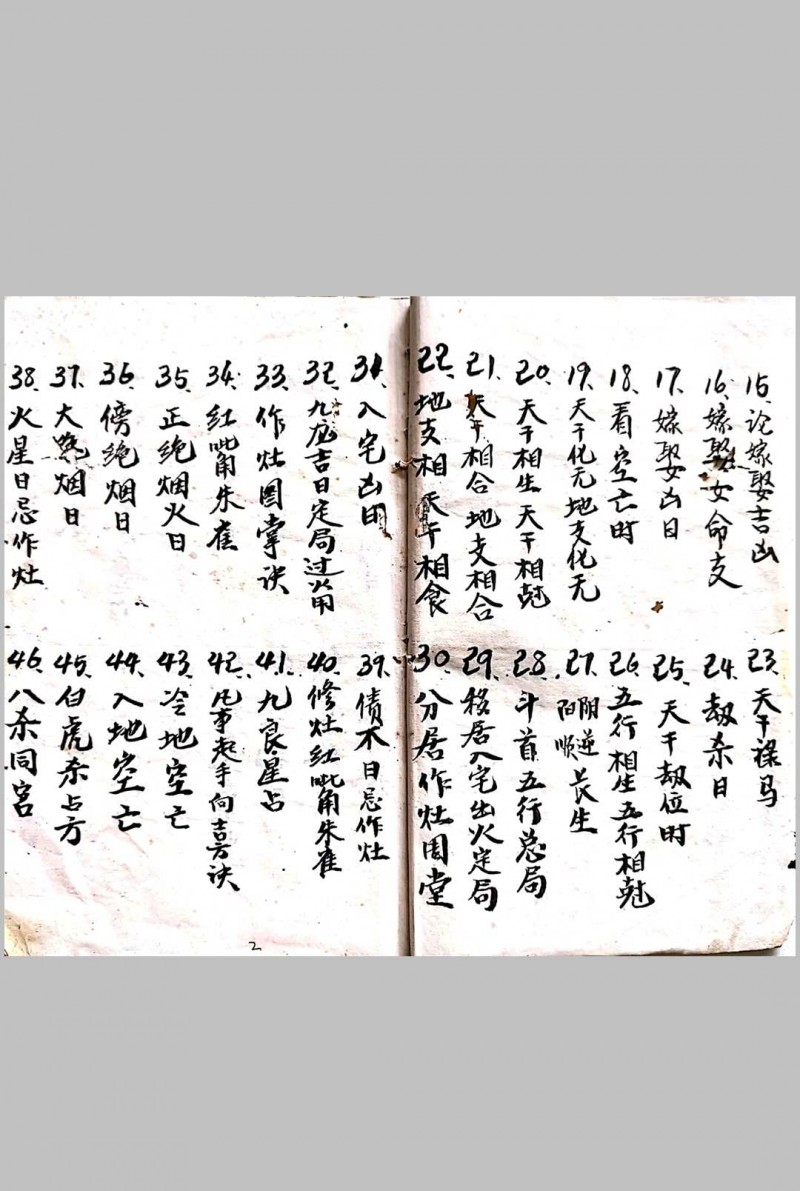 15.论嫁娶吉凶
16.嫁娶女命支
17.嫁娶凶日
18.看空亡时
19.天干化无地支化无
20.天干相生天干相尅
21.天干相合地支相合
22.地支相 天干相食
23.天干禄马
24.劫杀日
25.天干劫位时
26.五行相生五行相尅
27.阳顺阴逆长生
28.斗首五行总局
29.移居入宅出火定局
30.分居作灶周堂
31.入宅凶日
32.九应吉日定局过火用
33.作灶图掌诀
34.红嘴朱雀
35.正绝烟火日
36.傍绝烟日
37.大 烟日
38.火星日忌作灶
39.债不日忌作灶
40.修灶红嘴朱雀
41.九良星占
42.凡事起手向吉方诀
43.冷地空亡
44.入地空亡
45.白虎杀占方
46.八杀同宫
2